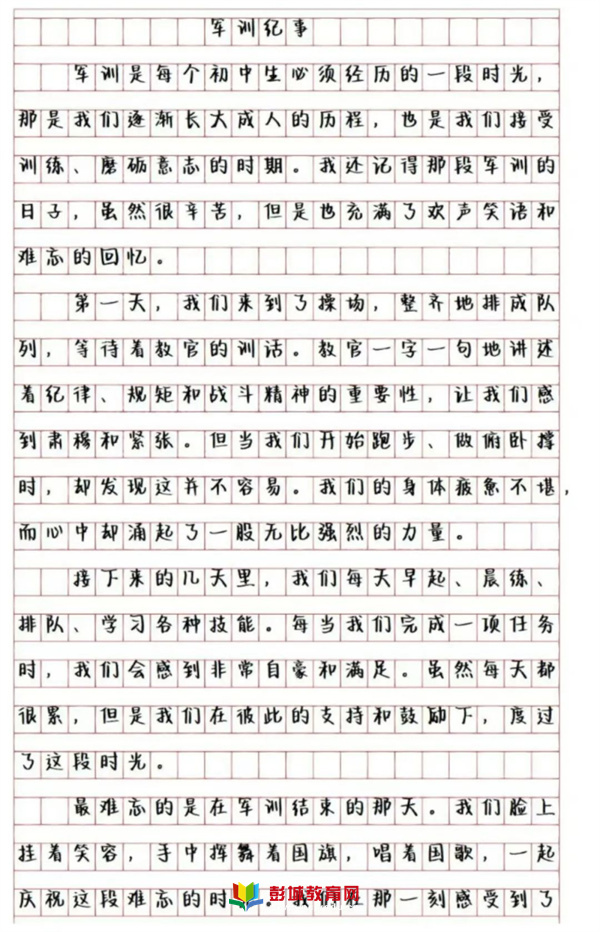 军训纪事
军训是每个初中生必须经历的一段时光，
那是我们逐渐长大成人的历程，也是我们接受
训练、磨砺意志的时期。我还记得那段军训的
日子，虽然很辛苦，但是也充满了欢声笑语和
难忘的回忆。
第一天，我们来到了操场，整齐地排成队
列，等待着教官的训话。教官一字一句地讲述
着纪律、规矩和战斗精神的重要性，让我们感
到肃穆和紧张。但当我们开始跑步、做俯卧撑
时，却发现这并不容易。我们的身体疲惫不堪，
而心中却涌起了一股无比强烈的力量。
接下来的几天里，我们每天早起、晨练、
排队、学习各种技能。每当我们完成一项任务
时，我们会感到非常自豪和满足。虽然每天都
很累，但是我们在彼此的支持和鼓励下，度过
了这段时光。
最难忘的是在军训结束的那天。我们脸上
挂着笑容，手中挥舞着国旗，唱着国歌，一起
庆祝这段难忘的时。我们在那一刻感受到了
彭城教育网